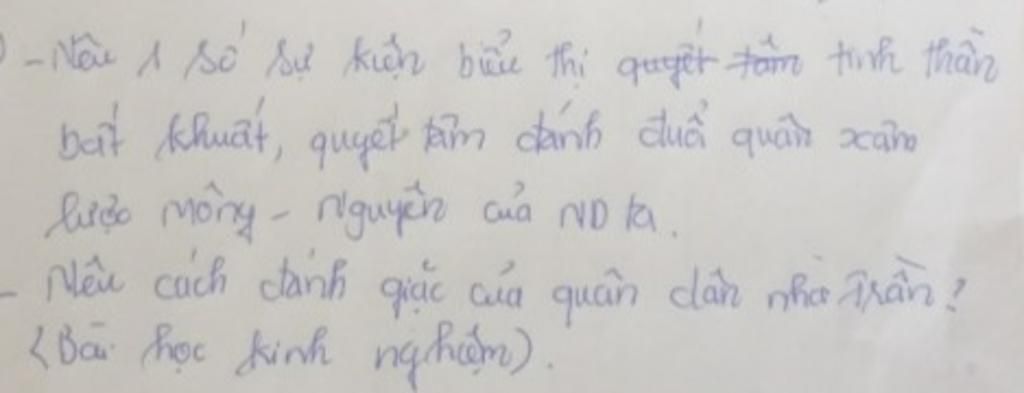 - Nêu 1 số sự kiện biểu thị quyết tâm tinh thần
bất khuất, quyết tâm đánh đuổi quân xâm
lược Mông - Nguyên của ND ta.
- Nêu cách đánh giặc của quân dân nhà Trần?
(Bài học kinh nghiệm).